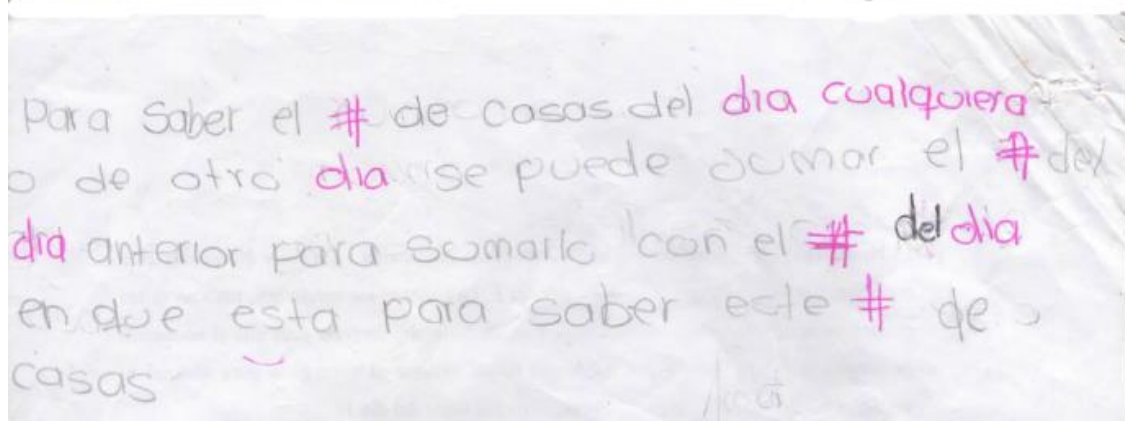 Para Saber el # de casas del dia cualquiera
o de otro dia se puede sumar el # del
dia anterior para sumarlo con el # del dia
en que esta para saber este # de
casas